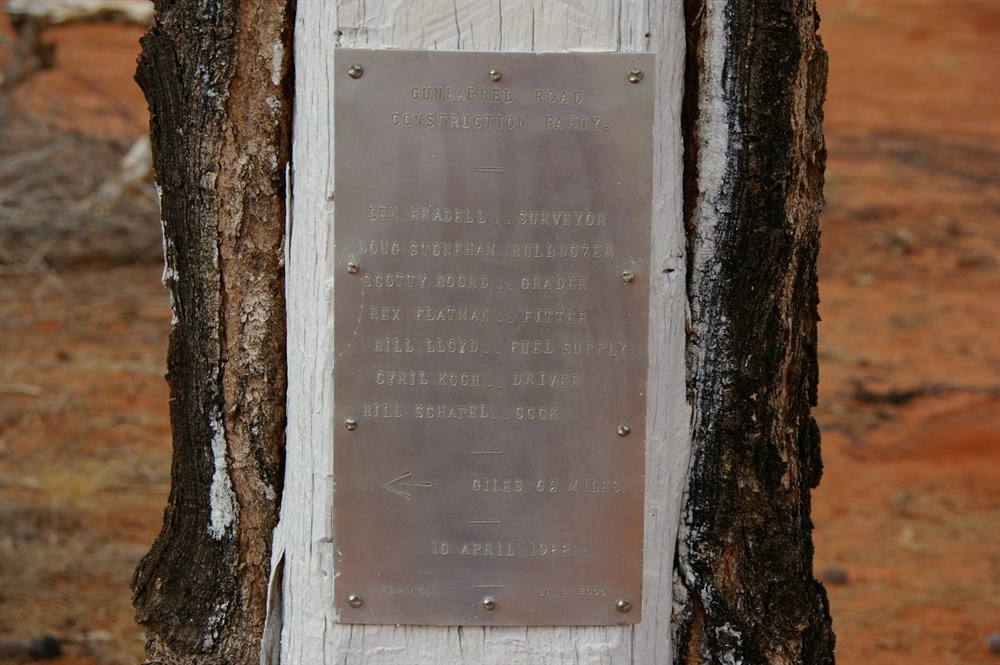 GUNBARREL ROAD
CONSTRUCTION PARTY.
LEN BEADELL .. SURVEYOR
DOUG STONEHAM .. BULLDOZER
SCOTTY BOORD .. GRADER
REX FLATMAN .. FITTER
BILL LLOYD .. FUEL SUPPLY
CYRIL KOCH .. DRIVER
BILL SCHAPEL .. COOK
← GILES MILES
10 APRIL